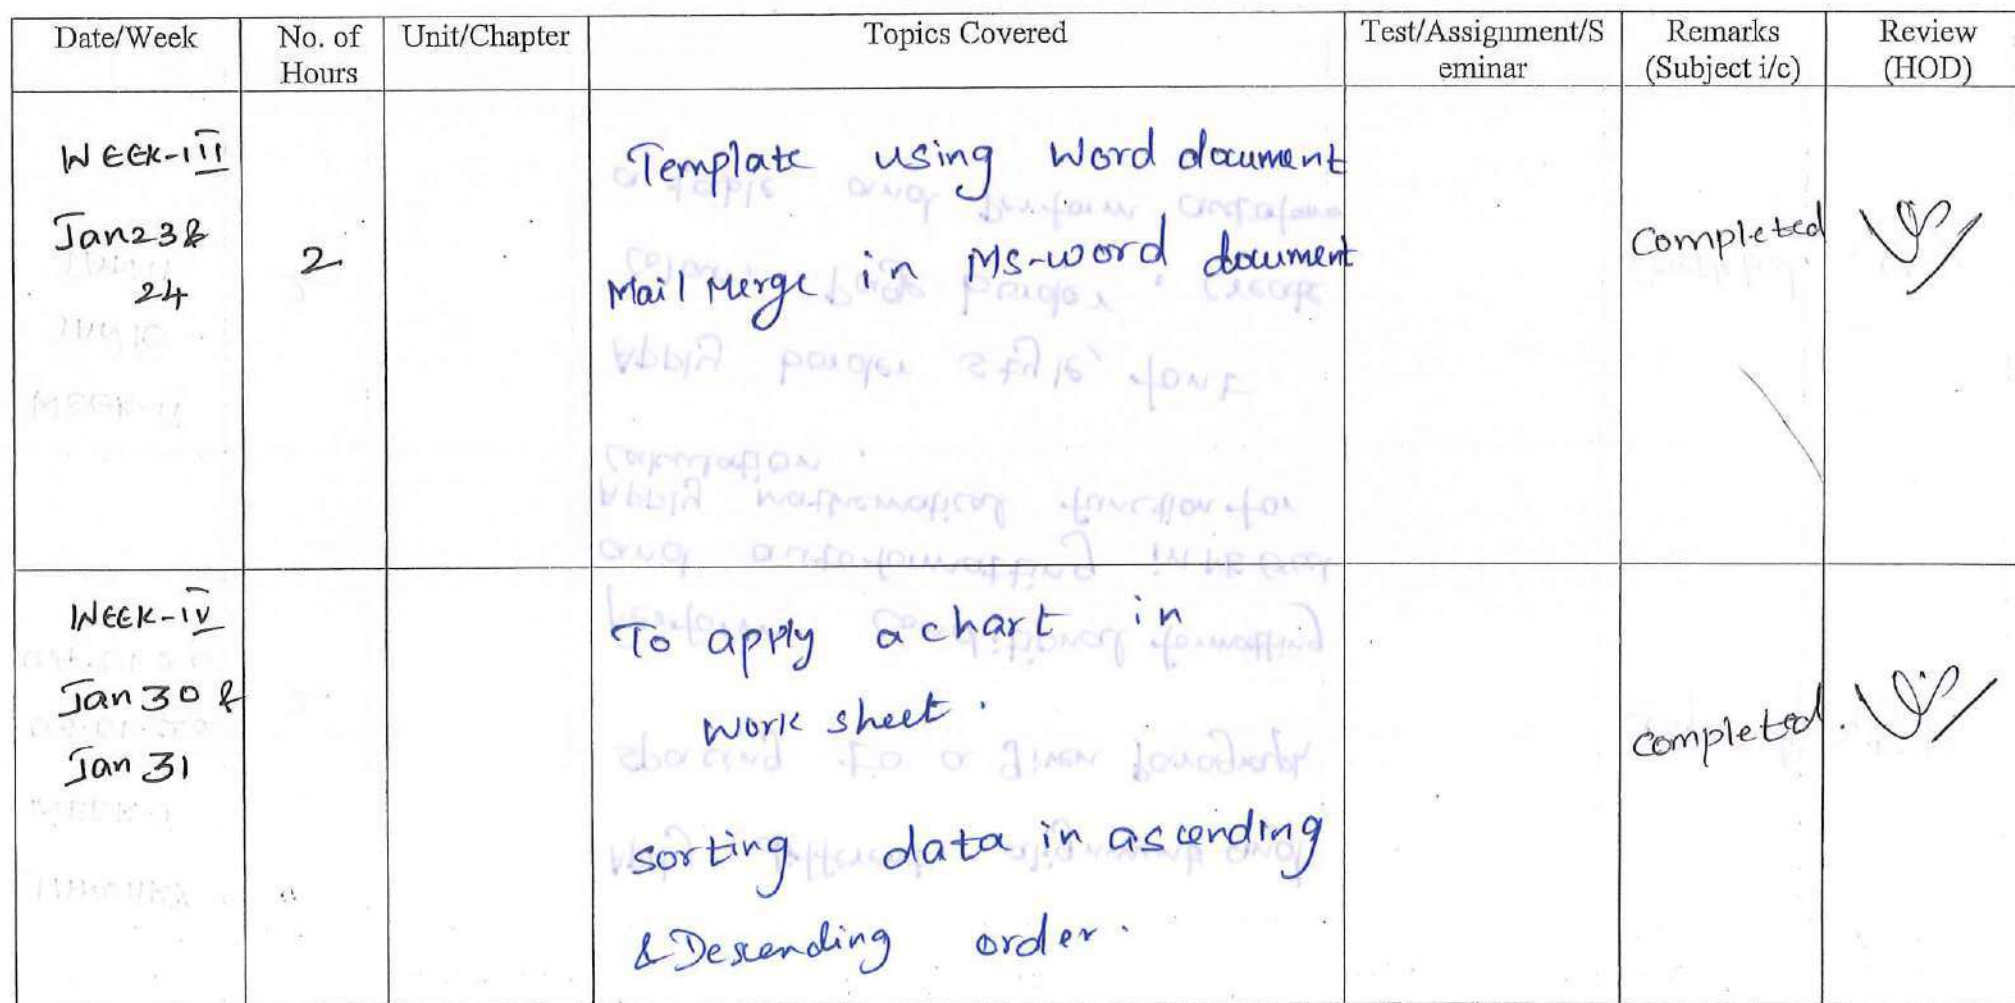 Date/Week No. of Hours Unit/Chapter Topics Covered Test/Assignment/Seminar Remarks (Subject i/c) Review (HOD)
WEEK-III
Jan 23 &
24
2
Template using Word document
Mail Merge in Ms-word document
Completed
WEEK-IV
Jan 30 &
Jan 31
To apply a chart in
work sheet.
sorting data in ascending
& Descending order.
completed.